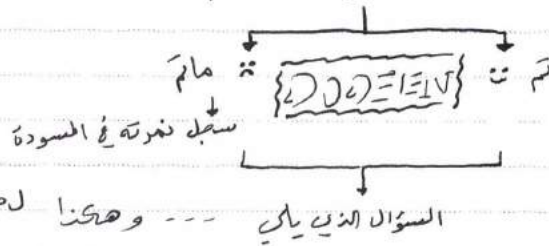 تم :) ما تم :(
سجل نمرته في المسودة
السؤال الذي يلي --- وهكذا